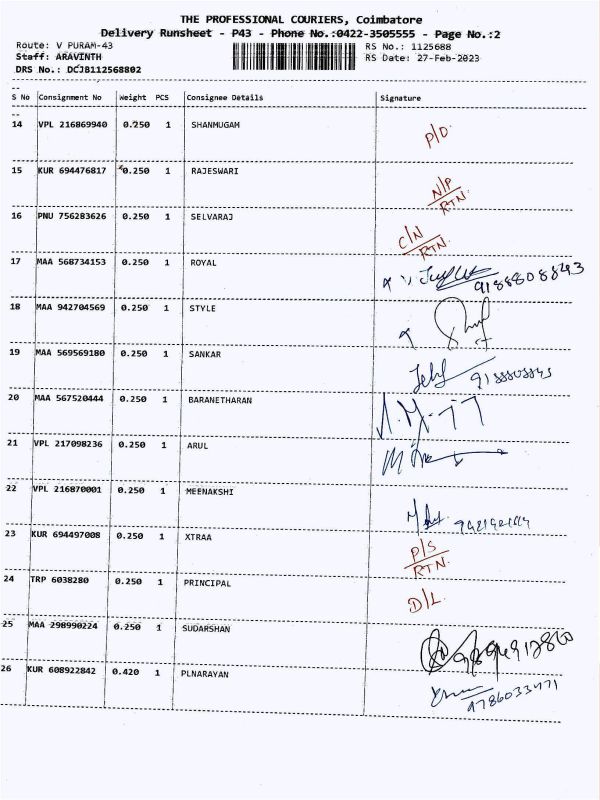 THE PROFESSIONAL COURIERS, Coimbatore
Delivery Runsheet - P43 - Phone No.:0422-3505555 - Page No.:2
Route: V PURAM-43 RS No.: 1125688
Staff: ARAVINTH RS Date: 27-Feb-2023
DRS No.: DCJB112568802
S No Consignment No Weight PCS Consignee Details Signature
14 VPL 216869940 0.250 1 SHANMUGAM P/D
15 KUR 694476817 0.250 1 RAJESWARI N/P
RTN
16 PNU 756283626 0.250 1 SELVARAJ C/N
RTN
17 MAA 568734153 0.250 1 ROYAL
18 MAA 942704569 0.250 1 STYLE
19 MAA 569569180 0.250 1 SANKAR
20 MAA 567520444 0.250 1 BARANETHARAN
21 VPL 217098236 0.250 1 ARUL
22 VPL 216870001 0.250 1 MEENAKSHI
23 KUR 694497008 0.250 1 XTRAA P/S
RTN
24 TRP 6038280 0.250 1 PRINCIPAL D/L
25 MAA 298990224 0.250 1 SUDARSHAN
26 KUR 608922842 0.420 1 PLNARAYAN
9786033471